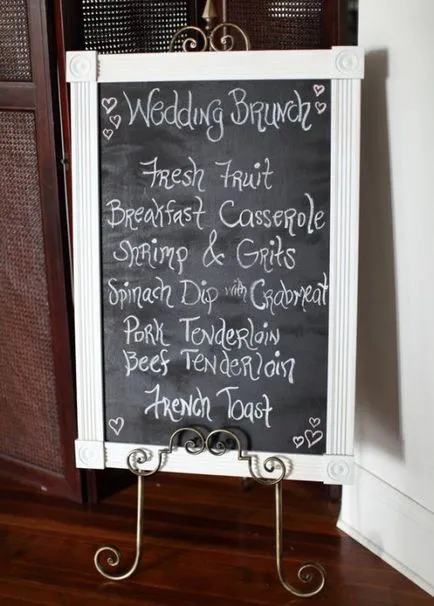 Wedding Brunch
Fresh Fruit
Breakfast Casserole
Shrimp & Grits
Spinach Dip with Crabmeat
Pork Tenderloin
Beef Tenderloin
French Toast